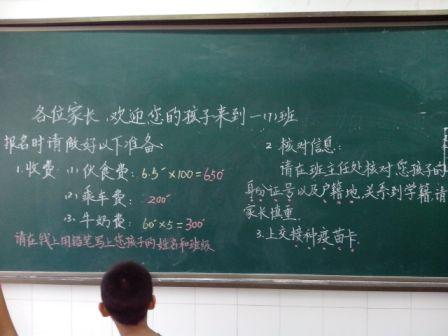 各位家长,欢迎您的孩子来到一(1)班
报名时请做好以下准备:
1.收费:(1)伙食费:6.5×100=650
(2)乘车费:200
(3)牛奶费:60×5=300
请在钱上用铅笔写上您孩子的姓名和班级
2.核对信息:
请在班主任处核对您孩子的
身份证号以及户籍地,关系到学籍,请
家长慎重.
3.上交接种疫苗卡.